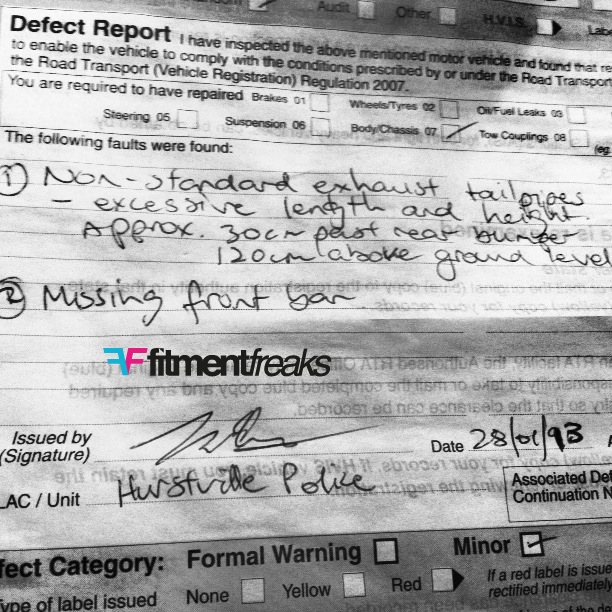 Audit Other H.V.I.S. Labe
Defect Report I have inspected the above mentioned motor vehicle and found that re
to enable the vehicle to comply with the conditions prescribed by or under the Road Transport
the Road Transport (Vehicle Registration) Regulation 2007.
You are required to have repaired Brakes 01 Wheels/Tyres 02 Oil/Fuel Leaks 03
Steering 05 Suspension 06 Body/Chassis 07 Tow Couplings 08
The following faults were found: (eg
① Non-standard exhaust tailpipes
- excessive length and height.
Approx. 30cm past rear bumper
120cm above ground level
② Missing front bar
FF fitmentfreaks
Issued by
(Signature)
Date 28/01/93
LAC / Unit Hurstville Police
Associated Def
Continuation N
fect Category: Formal Warning Minor
ype of label issued None Yellow Red
If a red label is issue
rectified immediately